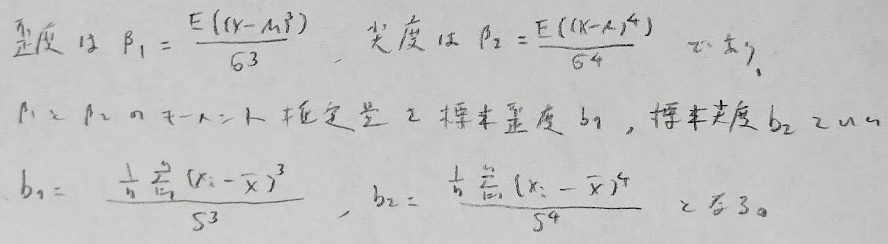 歪度は β₁ = E((X-μ)³) / σ³ 、尖度は β₂ = E((X-μ)⁴) / σ⁴ であり、
β₁と β₂ のモーメント推定量を標本歪度 b₁ , 標本尖度 b₂ といい
b₁ = (1/n) Σ_{i=1}^{n} (x_i - x̄)³ / S³ , b₂ = (1/n) Σ_{i=1}^{n} (x_i - x̄)⁴ / S⁴ となる。